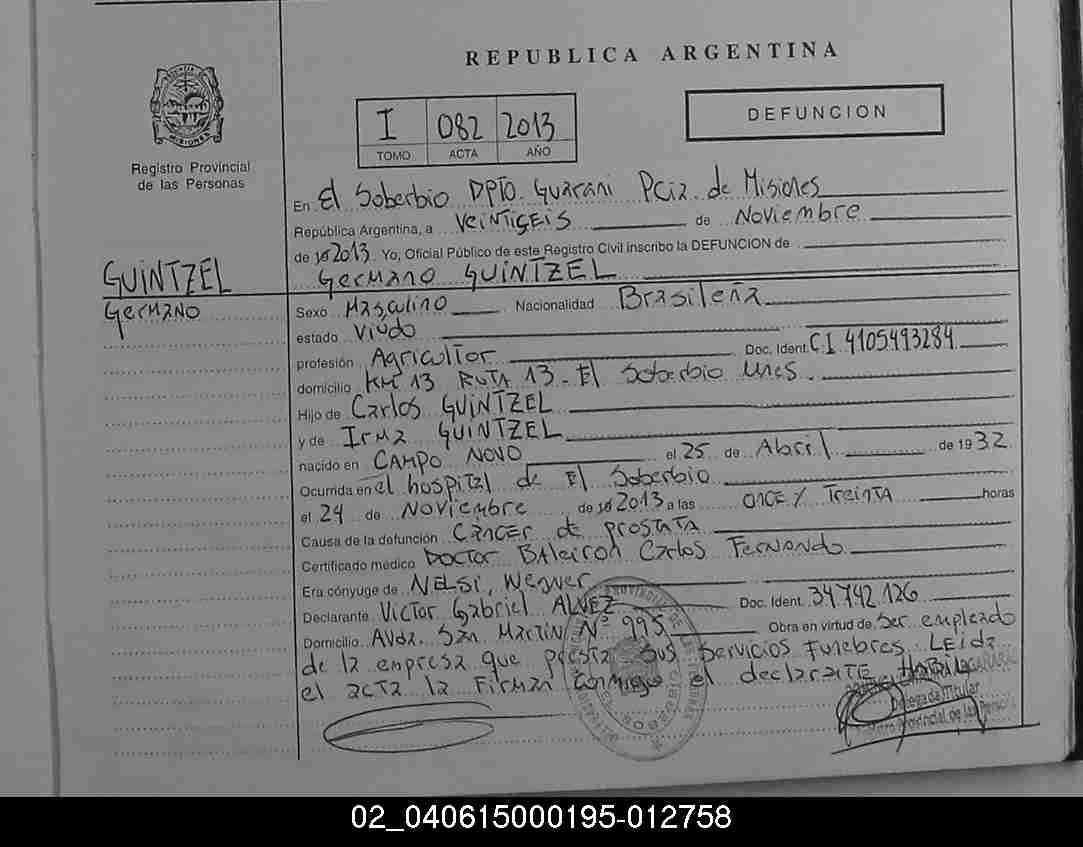 REPUBLICA ARGENTINA
DEFUNCION
I 082 2013
TOMO ACTA AÑO
Registro Provincial
de las Personas
GUINTZEL
GERMANO
En El Soberbio DPTO. Guarani Pcia de Misiones
República Argentina, a VEINTISEIS de Noviembre
de 2013 Yo, Oficial Público de este Registro Civil inscribo la DEFUNCION de
GERMANO GUINTZEL
Sexo Masculino Nacionalidad Brasileña
estado Viudo
profesión Agricultor Doc. Ident. CI 4105493284
domicilio KM 13 RUTA 13 - El Soberbio Mnes.
Hijo de Carlos GUINTZEL
y de Irma GUINTZEL
nacido en CAMPO NOVO el 25 de Abril de 1932
Ocurrida en el hospital de El Soberbio
el 24 de NOVIEMBRE de 2013 a las ONCE Y TREINTA horas
Causa de la defunción CÁNCER de PROSTATA
Certificado médico DOCTOR Carlos FERNANDO
Era cónyuge de NELSI
Declarante VICTOR Gabriel ALVEZ Doc. Ident. 34742126
Domicilio AVda. San Martin Nº 995 Obra en virtud de Ser empleado
de la empresa que presta sus servicios Funebres. LEIDA
el acta la FIRMAN conmigo el declarante
Delegada Titular
Registro Provincial de las Personas
02_040615000195-012758